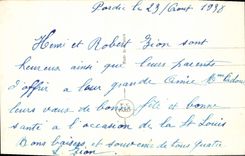 le 23 Aout 1938
Henri et Robert Zion sont
heureux ainsi que leurs parents
d'offrir a leur grande Amie Mme
leurs vœux de bonne fête et bonne
santé a l'occasion de la St Louis
Bons baisers et souvenir de tous quatre
Zion